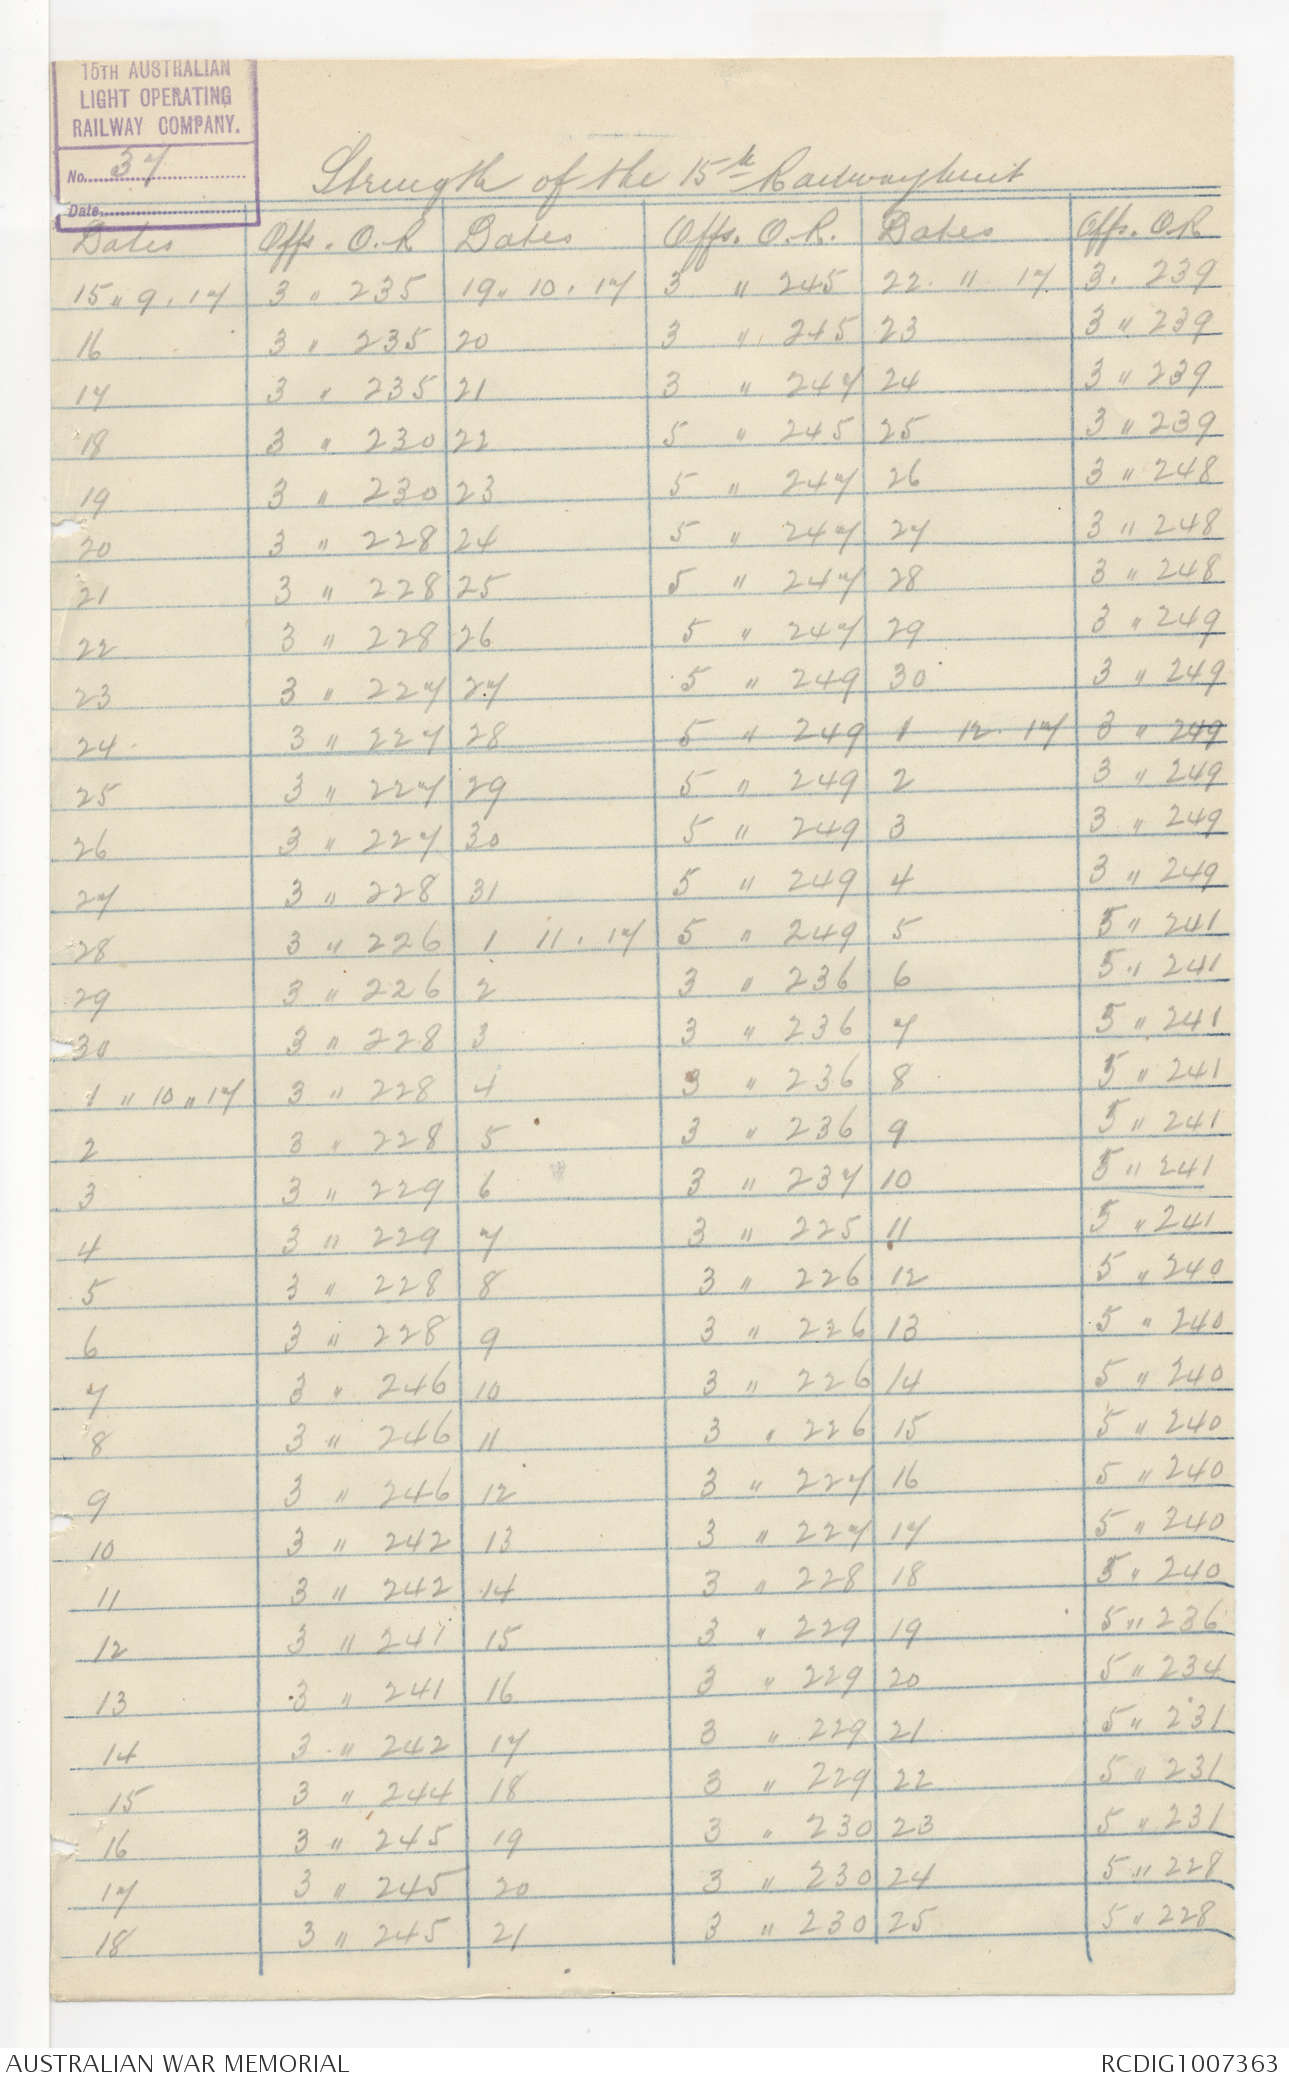 15TH AUSTRALIAN
LIGHT OPERATING
RAILWAY COMPANY.
No. 37
Date
Strength of the 15th Railway Unit
Dates Offs. O.R Dates Offs. O.R. Dates Offs. O.R
15 " 9 . 17 3 " 235 19 " 10 . 17 3 " 245 22 . 11 17 3 . 239
16 3 " 235 20 3 " 245 23 3 " 239
17 3 " 235 21 3 " 247 24 3 " 239
18 3 " 230 22 5 " 245 25 3 " 239
19 3 " 230 23 5 " 247 26 3 " 248
20 3 " 228 24 5 " 247 27 3 " 248
21 3 " 228 25 5 " 247 28 3 " 248
22 3 " 228 26 5 " 247 29 3 " 249
23 3 " 227 27 5 " 249 30 3 " 249
24 3 " 227 28 5 " 249 1 12 . 17 3 " 249
25 3 " 227 29 5 " 249 2 3 " 249
26 3 " 227 30 5 " 249 3 3 " 249
27 3 " 228 31 5 " 249 4 3 " 249
28 3 " 226 1 11 . 17 5 " 249 5 5 " 241
29 3 " 226 2 3 " 236 6 5 " 241
30 3 " 228 3 3 " 236 7 5 " 241
1 " 10 " 17 3 " 228 4 3 " 236 8 5 " 241
2 3 " 228 5 3 " 236 9 5 " 241
3 3 " 229 6 3 " 237 10 5 " 241
4 3 " 229 7 3 " 225 11 5 " 241
5 3 " 228 8 3 " 226 12 5 " 240
6 3 " 228 9 3 " 226 13 5 " 240
7 3 " 246 10 3 " 226 14 5 " 240
8 3 " 246 11 3 " 226 15 5 " 240
9 3 " 246 12 3 " 227 16 5 " 240
10 3 " 242 13 3 " 227 17 5 " 240
11 3 " 242 14 3 " 228 18 5 " 240
12 3 " 241 15 3 " 229 19 5 " 236
13 3 " 241 16 3 " 229 20 5 " 234
14 3 " 242 17 3 " 229 21 5 " 231
15 3 " 244 18 3 " 229 22 5 " 231
16 3 " 245 19 3 " 230 23 5 " 231
17 3 " 245 20 3 " 230 24 5 " 228
18 3 " 245 21 3 " 230 25 5 " 228
AUSTRALIAN WAR MEMORIAL
RCDIG1007363